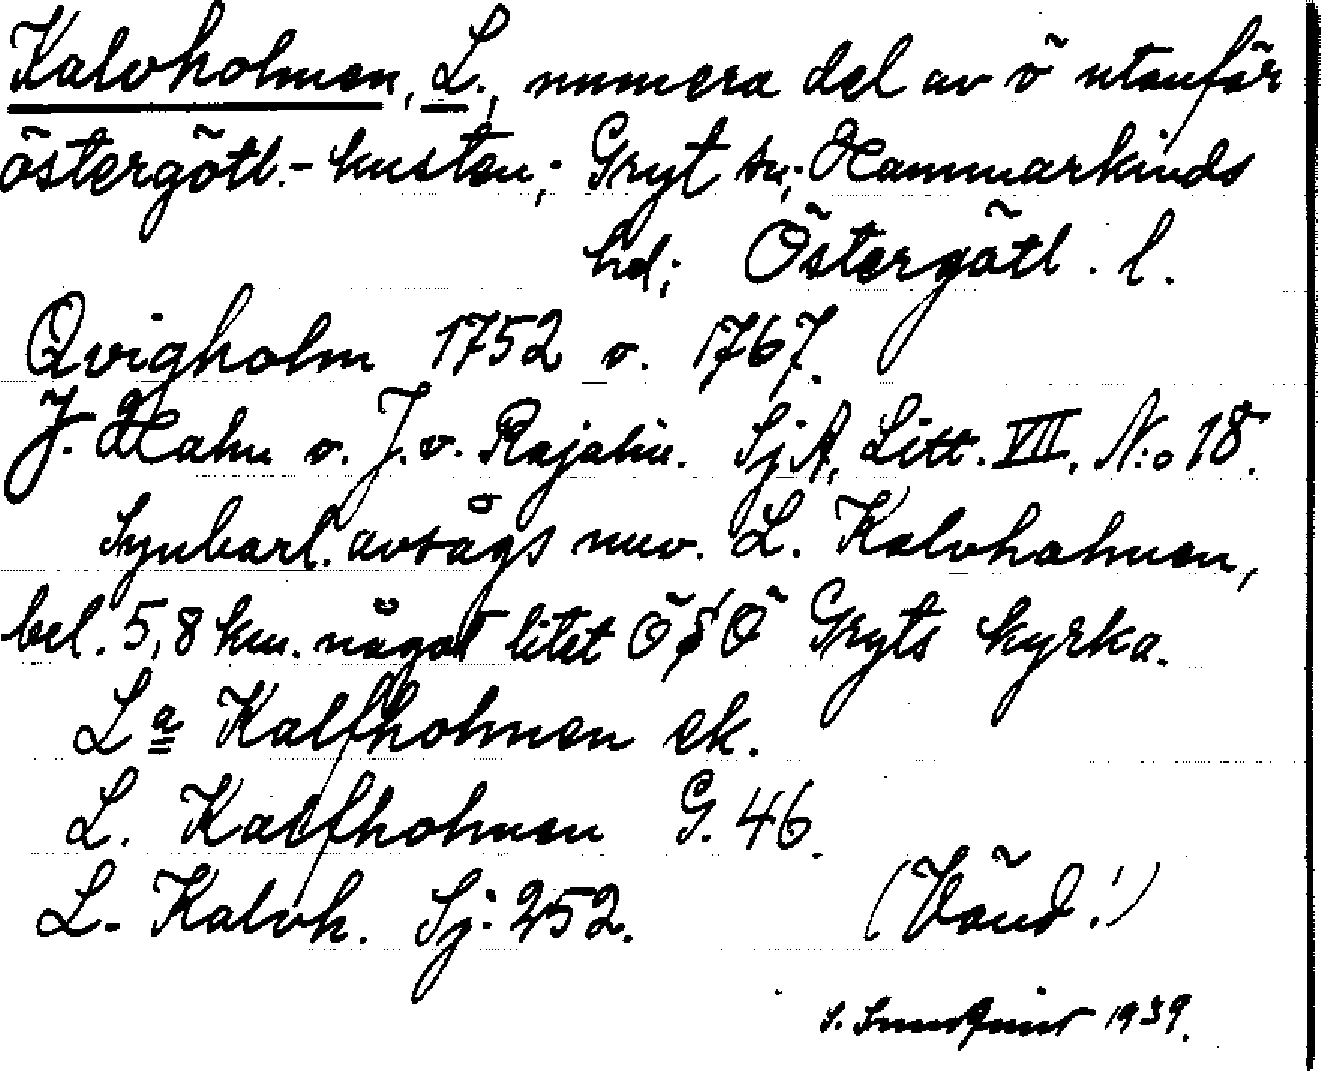 Kalvholmen, L., numera del av ö utanför
östergötl.-kusten; Gryt sn; Hammarkinds
hd; Östergötl. l.
Qvigholm 1752 o. 1767.
J. Hahn o. J. v. Rajalin. SjA, Litt. VII, N:o 18.
Synbarl. avsågs nuv. L. Kalvholmen,
bel. 5,8 km. något litet ÖSÖ Gryts kyrka.
La Kalfholmen ek.
L. Kalfholmen G. 46.
L. Kalvh. Sj. 252.
(Vänd!)
S. 1939.